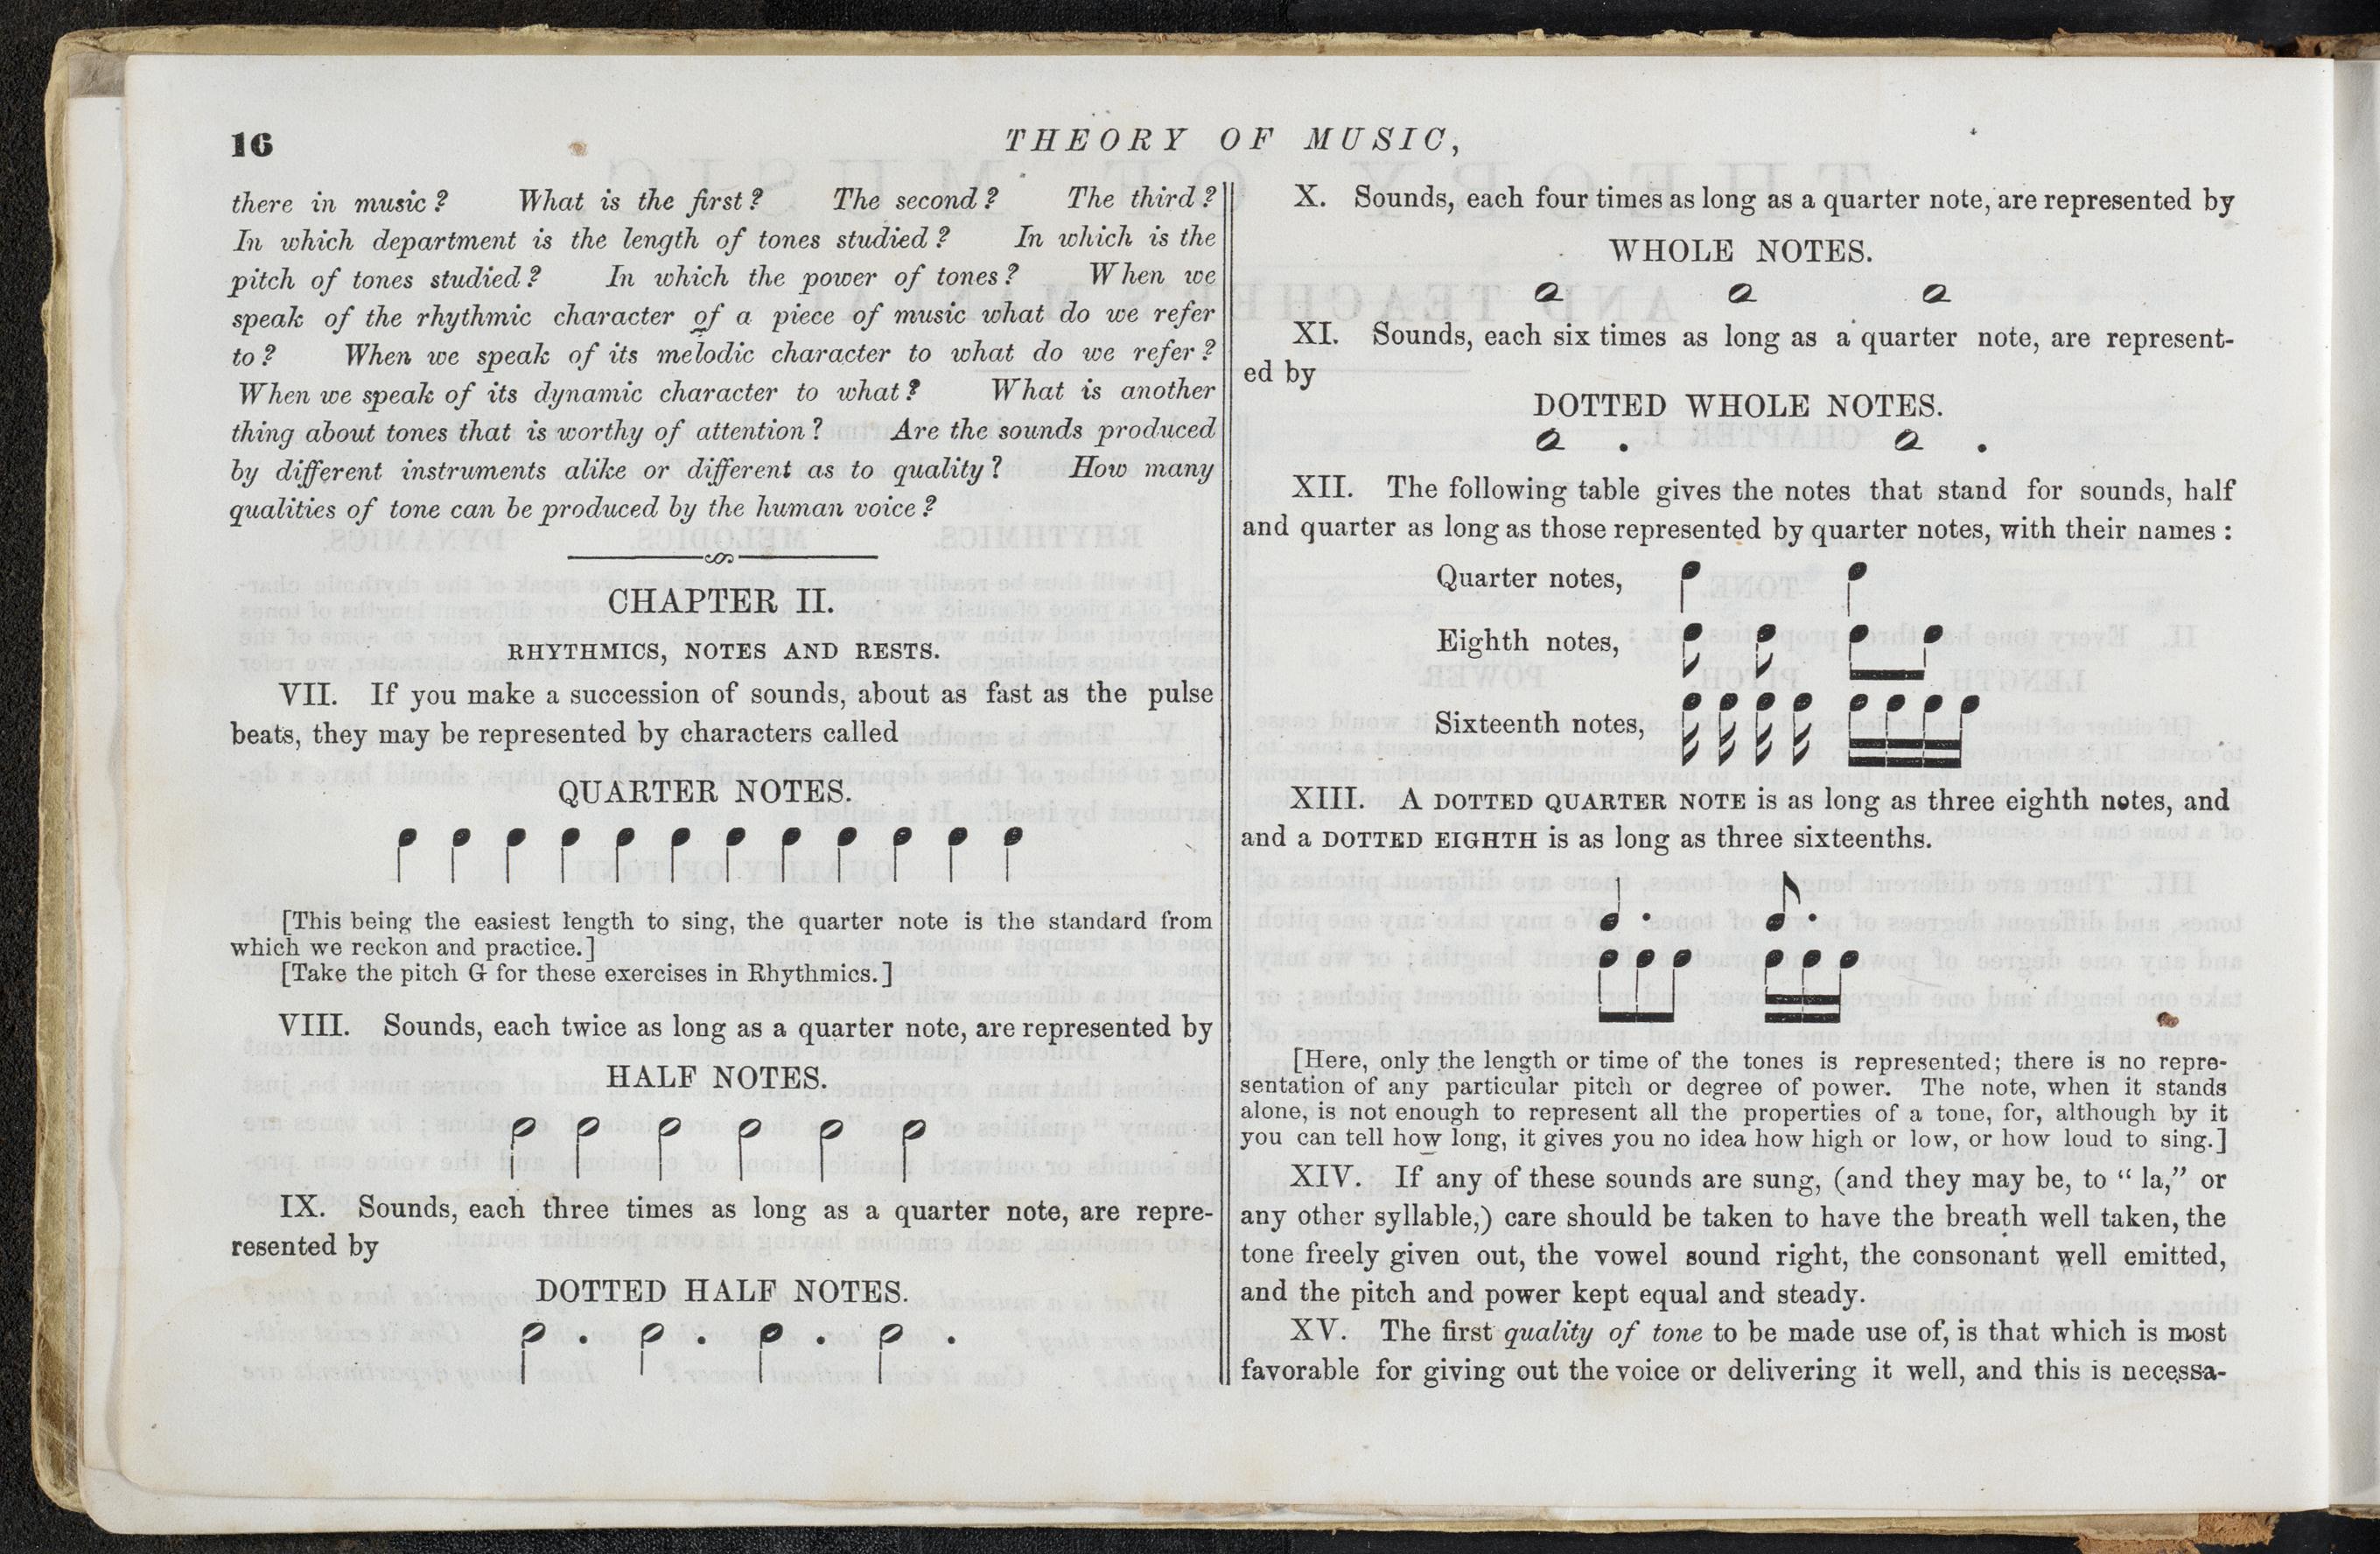 16
THEORY OF MUSIC,
there in music? What is the first? The second? The third?
In which department is the length of tones studied? In which is the
pitch of tones studied? In which the power of tones? When we
speak of the rhythmic character of a piece of music what do we refer
to? When we speak of its melodic character to what do we refer?
When we speak of its dynamic character to what? What is another
thing about tones that is worthy of attention? Are the sounds produced
by different instruments alike or different as to quality? How many
qualities of tone can be produced by the human voice?
CHAPTER II.
RHYTHMICS, NOTES AND RESTS.
VII. If you make a succession of sounds, about as fast as the pulse
beats, they may be represented by characters called
QUARTER NOTES.
[This being the easiest length to sing, the quarter note is the standard from
which we reckon and practice.]
[Take the pitch G for these exercises in Rhythmics.]
VIII. Sounds, each twice as long as a quarter note, are represented by
HALF NOTES.
IX. Sounds, each three times as long as a quarter note, are repre-
resented by
DOTTED HALF NOTES.
X. Sounds, each four times as long as a quarter note, are represented by
WHOLE NOTES.
XI. Sounds, each six times as long as a quarter note, are represent-
ed by
DOTTED WHOLE NOTES.
XII. The following table gives the notes that stand for sounds, half
and quarter as long as those represented by quarter notes, with their names:
Quarter notes,
Eighth notes,
Sixteenth notes,
XIII. A DOTTED QUARTER NOTE is as long as three eighth notes, and
and a DOTTED EIGHTH is as long as three sixteenths.
[Here, only the length or time of the tones is represented; there is no repre-
sentation of any particular pitch or degree of power. The note, when it stands
alone, is not enough to represent all the properties of a tone, for, although by it
you can tell how long, it gives you no idea how high or low, or how loud to sing.]
XIV. If any of these sounds are sung, (and they may be, to "la," or
any other syllable,) care should be taken to have the breath well taken, the
tone freely given out, the vowel sound right, the consonant well emitted,
and the pitch and power kept equal and steady.
XV. The first quality of tone to be made use of, is that which is most
favorable for giving out the voice or delivering it well, and this is necessa-